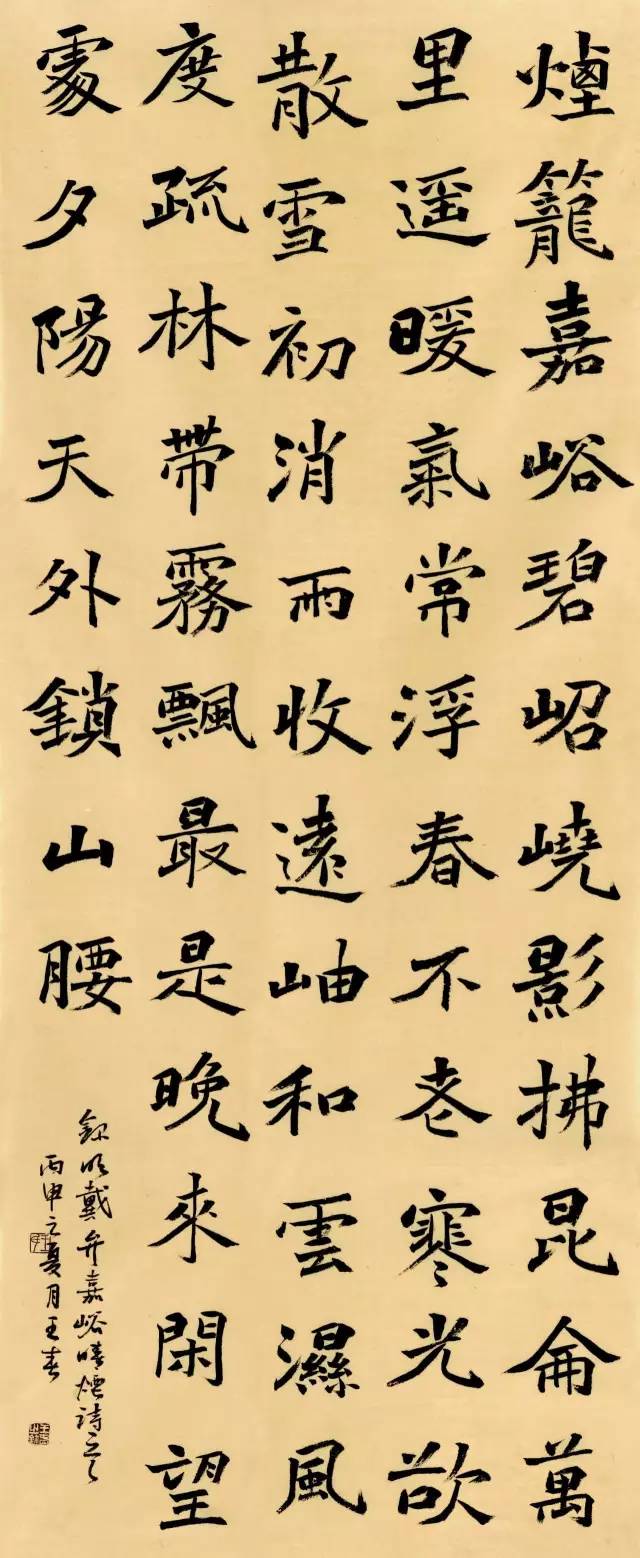 煙籠嘉峪碧岹嶢影拂昆侖萬
里遥暖氣常浮春不老寒光欲
散雪初消雨收遠岫和雲濕風
度疏林帶霧飄最是晚來閑望
處夕陽天外鎖山腰
錄明戴弁嘉峪晴煙詩
丙申之夏月王春